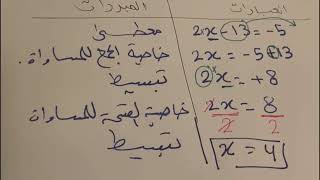 العبارات المبررات
2x - 13 = -5 معطى
2x = -5 + 13 خاصية الجمع للمساواة.
2x = +8 تبسيط
2x/2 = 8/2 خاصية القسمة للمساواة
x = 4 تبسيط